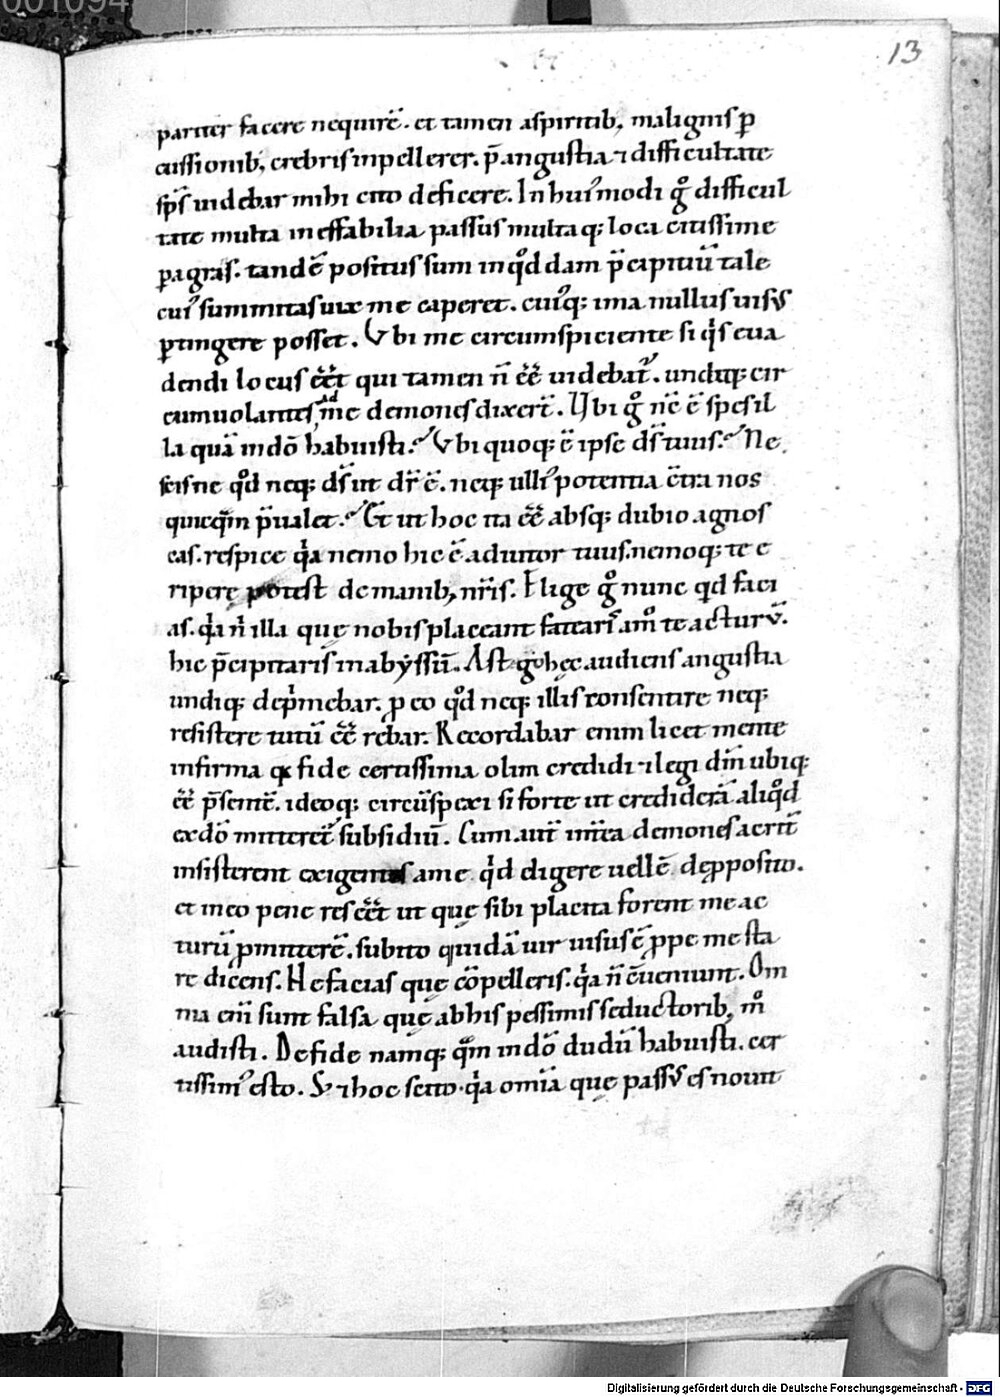 001094
13
pariter facere nequirē. et tamen aspiritib; malignis ꝑ
cussionib; crebris inpellerer. p̄angustia ⁊ difficultate
sp̄s uidebar mihi cito deficere. In hui᾽modi g̊ difficul
tate multa ineffabilia passus multaq; loca citissime
ꝑagras. tandē positus sum in q̊ddam p̄cipitiū tale
cui᾽ summitas uix me caperet. cui᾽q; ima nullus uisꝰ
ꝑtingere posset. Vbi me circumspiciente si q̍s eua
dendi locus eēt qui tamen n̄ eē uidebat᾽. undiq; cir
cumuolantes ad me demones dixer̄t. Vbi g̊ nc̄ ē spes il
la quā in dō habuisti? Vbi quoq; ē ipse ds̄ tuus? Ne
scisne q̊d neq; ds̄ ut dr̄ ē. neq; ulli᾽ potentia c̄tra nos
quicq̄m p̄ualet? Et ut hoc ita eē absq; dubio agnos
cas. respice q̍a nemo hic ē adiutor tuus. nemoq; te e
ripere potest de manib; nr̄is. Elige g̊ nunc quid faci
as. q̍a n̍ illa quę nobis placeant fatearis am̊ te acturū.
hic p̄cipitaris in abyssū. Ast g̊ hęc audiens angustia
undiq; dep̍mebar. ꝓ eo q̊d neq; illis consentire neq;
resistere tutū eē rebar. Recordabar enim licet mente
infirma qđ fide certissima olim credidi ⁊ legi dm̄ ubiq;
eē p̄sentē. ideoq; circūspexi si forte ut credideram̄ aliq̊d
ex dō mitteret᾽ subsidiū. Cum aut̄ int̄ea demones acrit᾽
insisterent exigentes a me. q̍d digere uellē de ꝓposito.
et in eo pene res eēt ut quę sibi placita forent me ac
turū ꝓmitterē. subito quidā uir uisus ē ꝓpe me sta
re dicens. Ne facias quę cōpelleris. q̍a n̄ eueniunt. Om
nia eni᾽ sunt falsa quę ab his pessimis seductorib; m̊
audisti. De fide namq; q̄m in dō dudū habuisti. cer
tissim᾽ esto. S; ⁊ hoc scito. q̍a omīa quę passꝰ es nouit
Digitalisierung gefördert durch die Deutsche Forschungsgemeinschaft - DFG